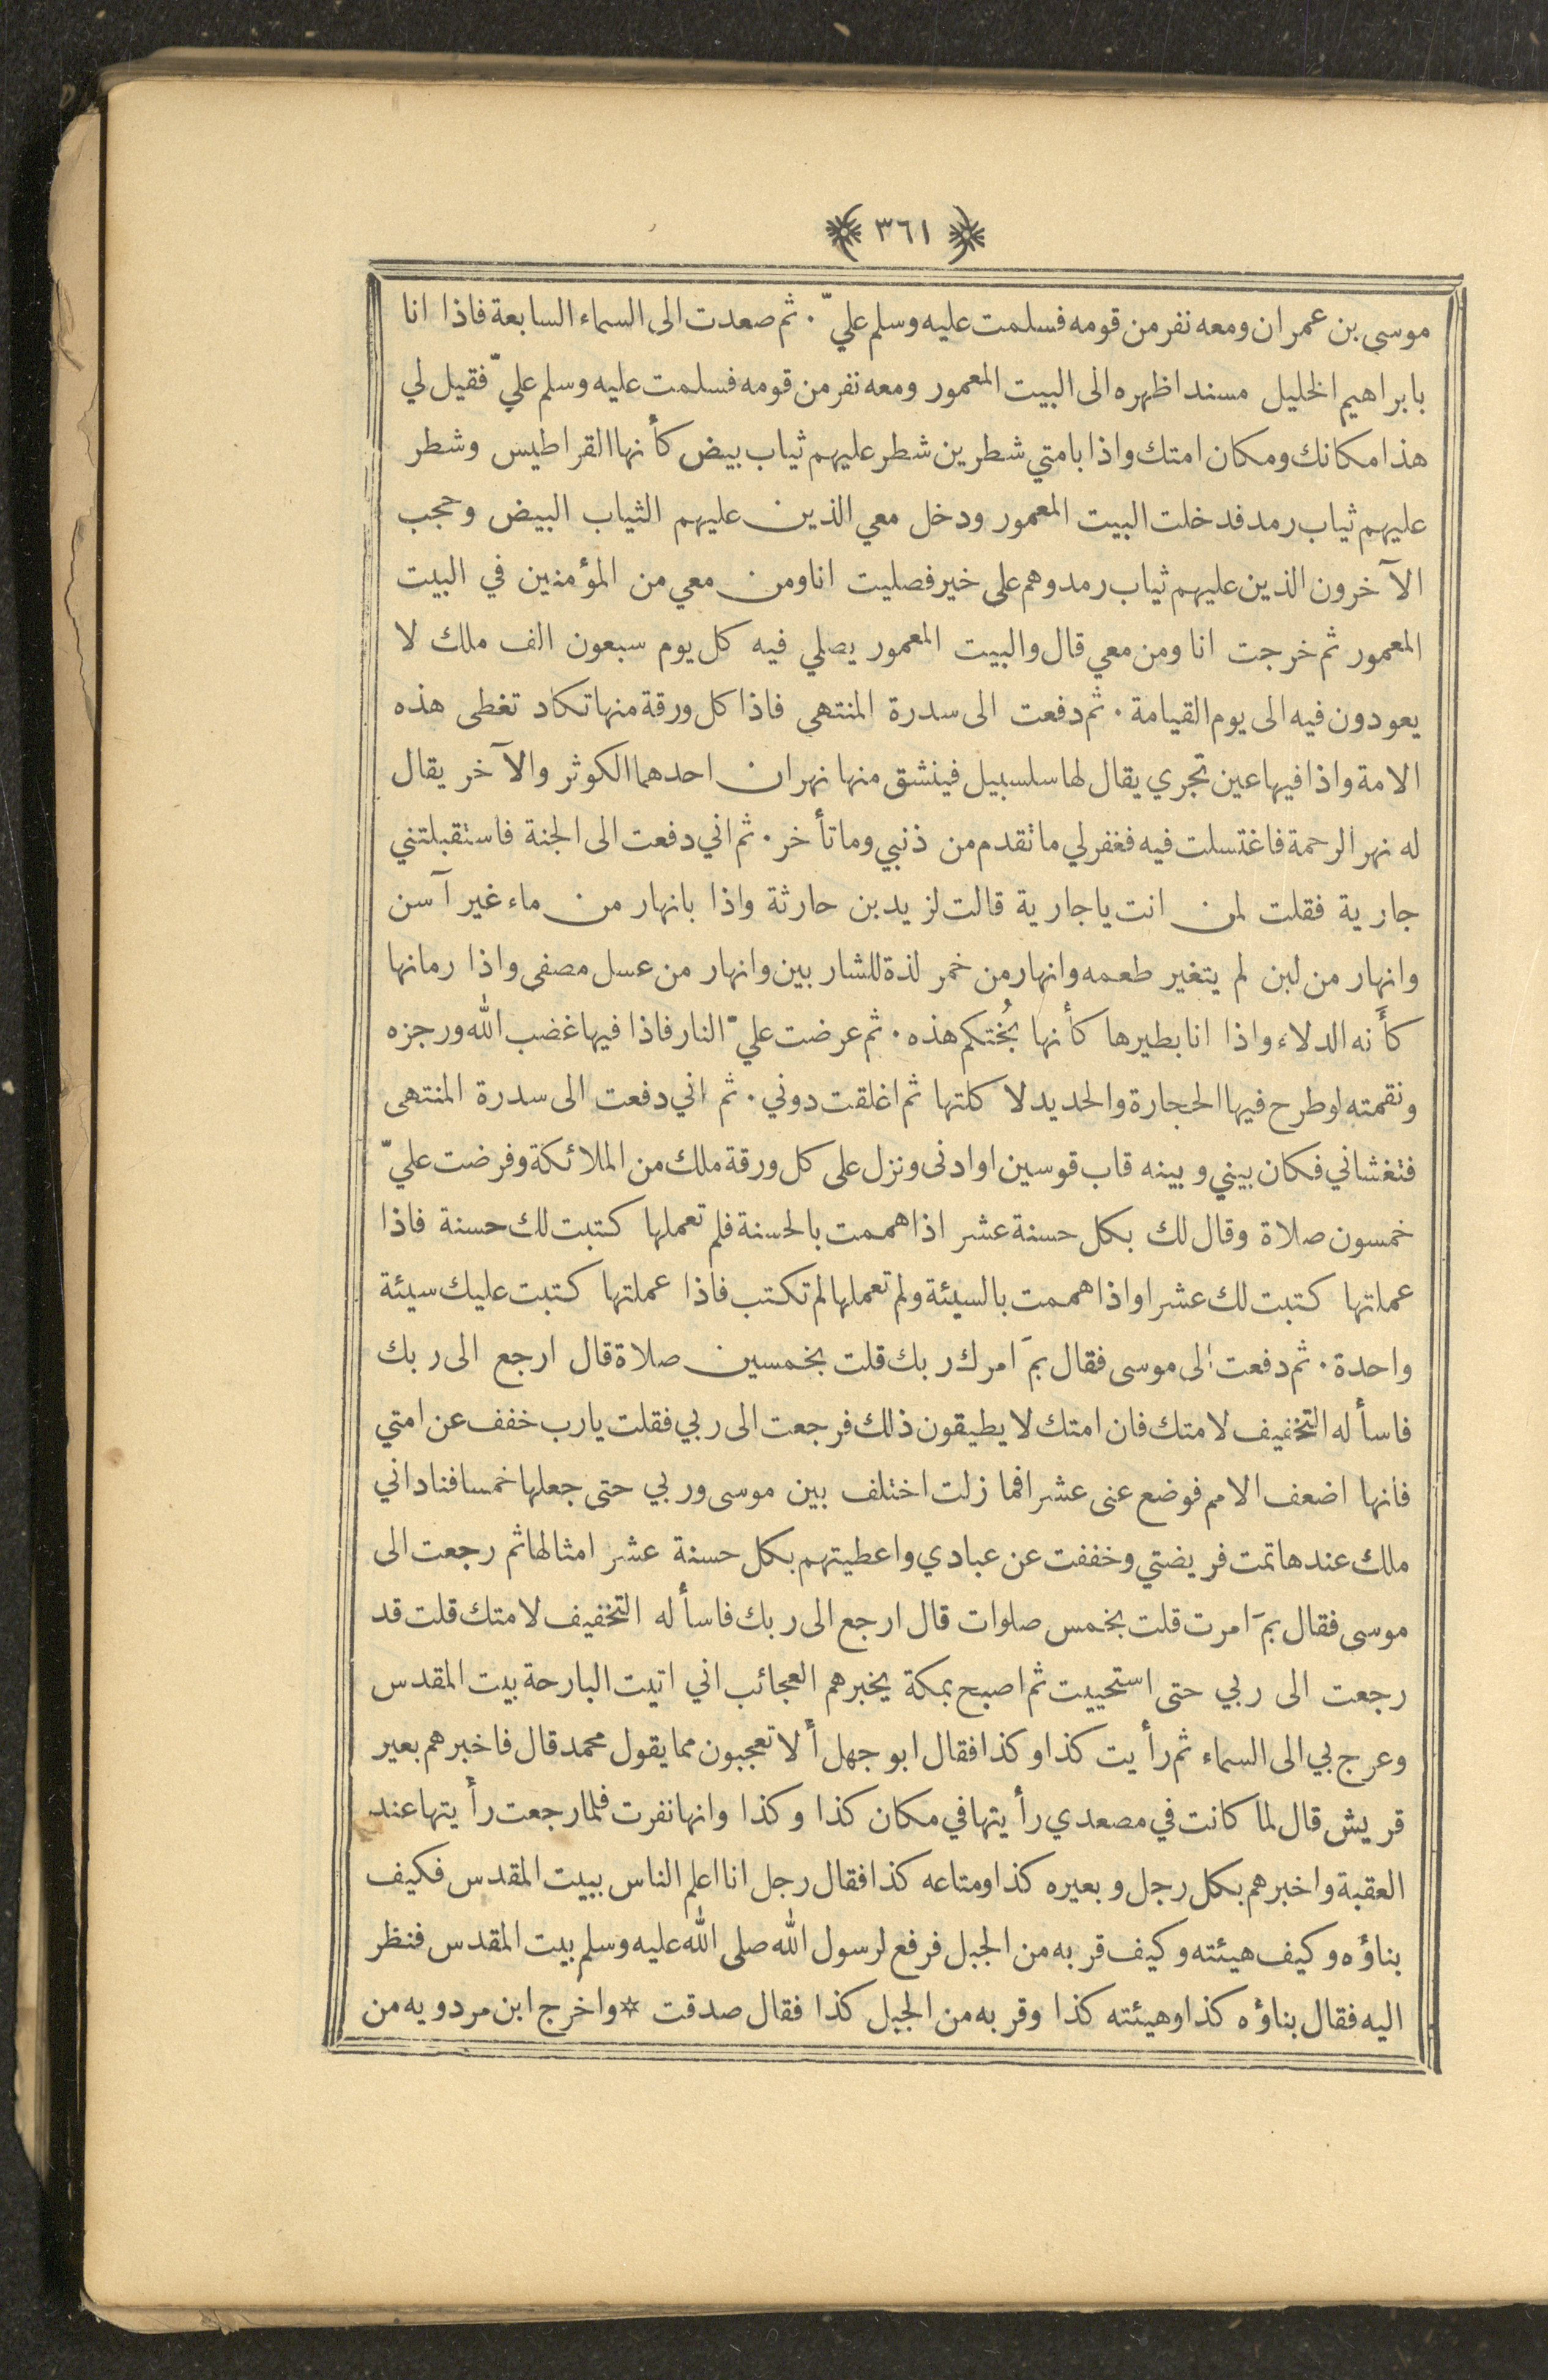 ﴿ ٣٦١ ﴾
موسى بن عمران ومعه نفر من قومه فسلمت عليه وسلم عليّ . ثم صعدت الى السماء السابعة فاذا انا
بابراهيم الخليل مسندا ظهره الى البيت المعمور ومعه نفر من قومه فسلمت عليه وسلم عليّ فقيل لي
هذا مكانك ومكان امتك واذا بامتي شطرين شطر عليهم ثياب بيض كأنها القراطيس وشطر
عليهم ثياب رمد فدخلت البيت المعمور ودخل معي الذين عليهم الثياب البيض وحجب
الآخرون الذين عليهم ثياب رمد وهم على خير فصليت انا ومن معي من المؤمنين في البيت
المعمور ثم خرجت انا ومن معي قال والبيت المعمور يصلي فيه كل يوم سبعون الف ملك لا
يعودون فيه الى يوم القيامة . ثم دفعت الى سدرة المنتهى فاذا كل ورقة منها تكاد تغطى هذه
الامة واذا فيها عين تجري يقال لها سلسبيل فينشق منها نهران احدهما الكوثر والآخر يقال
له نهر الرحمة فاغتسلت فيه فغفر لي ما تقدم من ذنبي وما تأخر . ثم اني دفعت الى الجنة فاستقبلتني
جارية فقلت لمن انت يا جارية قالت لزيد بن حارثة واذا بانهار من ماء غير آسن
وانهار من لبن لم يتغير طعمه وانهار من خمر لذة للشاربين وانهار من عسل مصفى واذا رمانها
كأنه الدلاء واذا انا بطيرها كأنها بُختكم هذه . ثم عرضت عليّ النار فاذا فيها غضب الله ورجزه
ونقمته لو طرح فيها الحجارة والحديد لاكلتها ثم اغلقت دوني . ثم اني دفعت الى سدرة المنتهى
فتغشاني فكان بيني وبينه قاب قوسين او ادنى ونزل على كل ورقة ملك من الملائكة وفرضت عليّ
خمسون صلاة وقال لك بكل حسنة عشر اذا هممت بالحسنة فلم تعملها كتبت لك حسنة فاذا
عملتها كتبت لك عشرا واذا هممت بالسيئة ولم تعملها لم تكتب فاذا عملتها كتبت عليك سيئة
واحدة . ثم دفعت الى موسى فقال بمَ امرك ربك قلت بخمسين صلاة قال ارجع الى ربك
فاسأله التخفيف لامتك فان امتك لا يطيقون ذلك فرجعت الى ربي فقلت يارب خفف عن امتي
فانها اضعف الامم فوضع عنى عشرا فما زلت اختلف بين موسى وربي حتى جعلها خمسا فناداني
ملك عندها تمت فريضتي وخففت عن عبادي واعطيتهم بكل حسنة عشر امثالها ثم رجعت الى
موسى فقال بمَ امرت قلت بخمس صلوات قال ارجع الى ربك فاسأله التخفيف لامتك قلت قد
رجعت الى ربي حتى استحييت ثم اصبح بمكة يخبرهم العجائب اني اتيت البارحة بيت المقدس
وعرج بي الى السماء ثم رأيت كذا وكذا فقال ابو جهل ألا تعجبون مما يقول محمد قال فاخبرهم بعير
قريش قال لما كانت في مصعدي رأيتها في مكان كذا وكذا وانها نفرت فلما رجعت رأيتها عند
العقبة واخبرهم بكل رجل وبعيره كذا ومتاعه كذا فقال رجل انا اعلم الناس ببيت المقدس فكيف
بناؤه وكيف هيئته وكيف قربه من الجبل فرفع لرسول الله صلى الله عليه وسلم بيت المقدس فنظر
اليه فقال بناؤه كذا وهيئته كذا وقربه من الجبل كذا فقال صدقت * واخرج ابن مردويه من